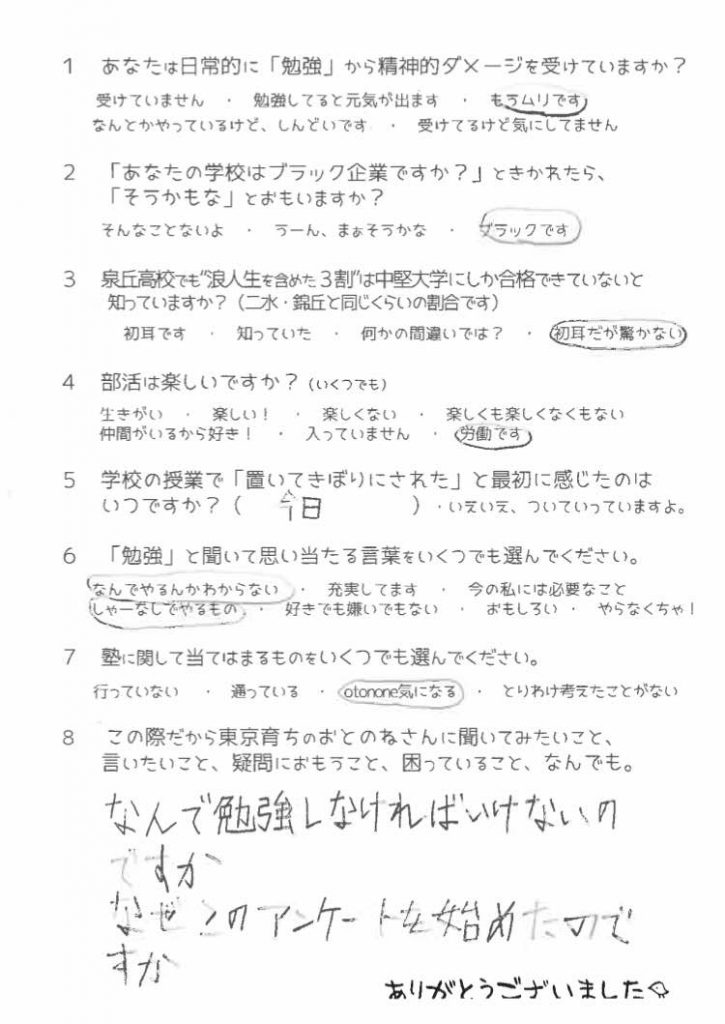 1 あなたは日常的に「勉強」から精神的ダメージを受けていますか？
受けていません ・ 勉強してると元気が出ます ・ もうムリです
なんとかやっているけど、しんどいです ・ 受けてるけど気にしてません
2 「あなたの学校はブラック企業ですか？」ときかれたら、
「そうかもな」とおもいますか？
そんなことないよ ・ うーん、まぁそうかな ・ ブラックです
3 泉丘高校でも“浪人生を含めた３割”は中堅大学にしか合格できていないと
知っていますか？（二水・錦丘と同じくらいの割合です）
初耳です ・ 知っていた ・ 何かの間違いでは？ ・ 初耳だが驚かない
4 部活は楽しいですか？（いくつでも）
生きがい ・ 楽しい！ ・ 楽しくない ・ 楽しくも楽しくなくもない
仲間がいるから好き！ ・ 入っていません ・ 労働です
5 学校の授業で「置いてきぼりにされた」と最初に感じたのは
いつですか？（ 今日 ）・いえいえ、ついていっていますよ。
6 「勉強」と聞いて思い当たる言葉をいくつでも選んでください。
なんでやるんかわからない ・ 充実してます ・ 今の私には必要なこと
しゃーなしでやるもの ・ 好きでも嫌いでもない ・ おもしろい ・ やらなくちゃ！
7 塾に関して当てはまるものをいくつでも選んでください。
行っていない ・ 通っている ・ otonone気になる ・ とりわけ考えたことがない
8 この際だから東京育ちのおとのねさんに聞いてみたいこと、
言いたいこと、疑問におもうこと、困っていること、なんでも。
なんで勉強しなければいけないの
ですか
なぜこのアンケートを始めたので
すか
ありがとうございました